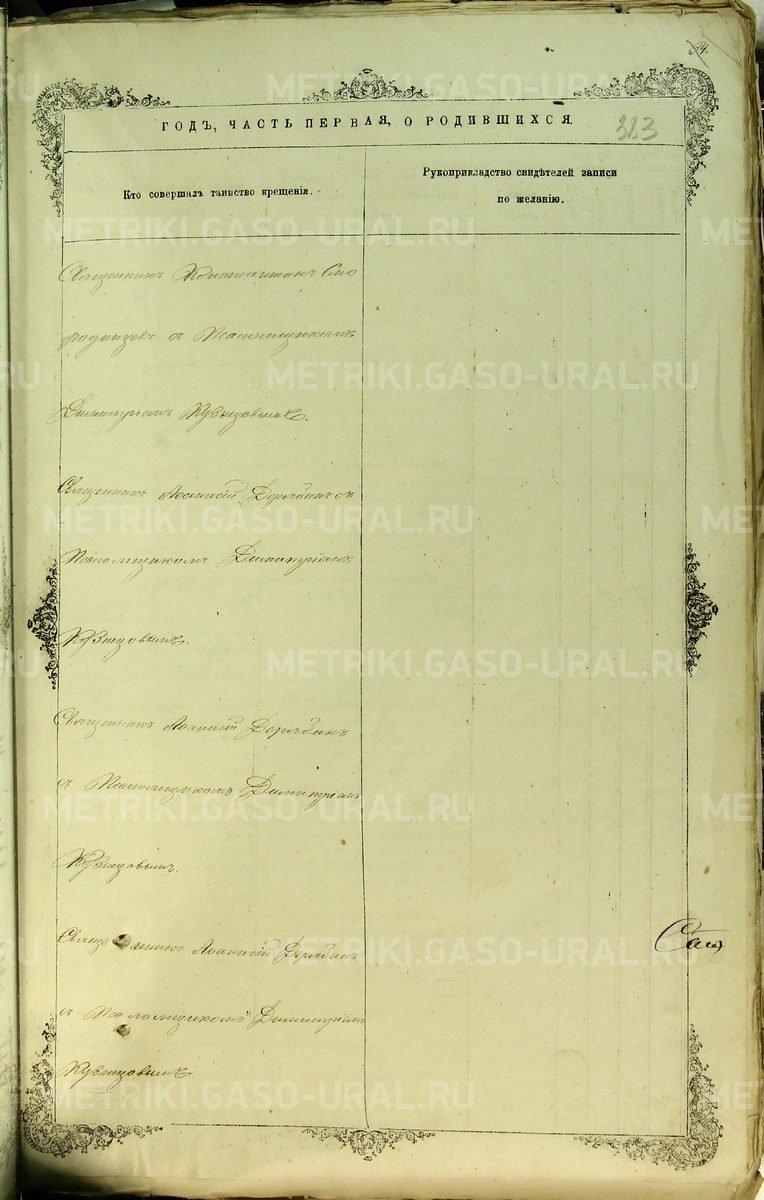 4.
ГОДЪ, ЧАСТЬ ПЕРВАЯ, О РОДИВШИХСЯ.
323
Кто совершалъ таинство крещенія.
Рукоприкладство свидѣтелей записи
по желанію.
Священникъ Константинъ Смо
родинцевъ съ Псаломщикомъ
Димитріемъ Кузнецовымъ.
Священникъ Аѳанасій Дерябинъ съ
Псаломщикомъ Димитріемъ
Кузнецовымъ.
Священникъ Аѳанасій Дерябинъ
съ Псаломщикомъ Димитріемъ
Кузнецовымъ.
Священникъ Аѳанасій Дерябинъ
съ Псаломщикомъ Димитріемъ
Кузнецовымъ
METRIKI.GASO-URAL.RU